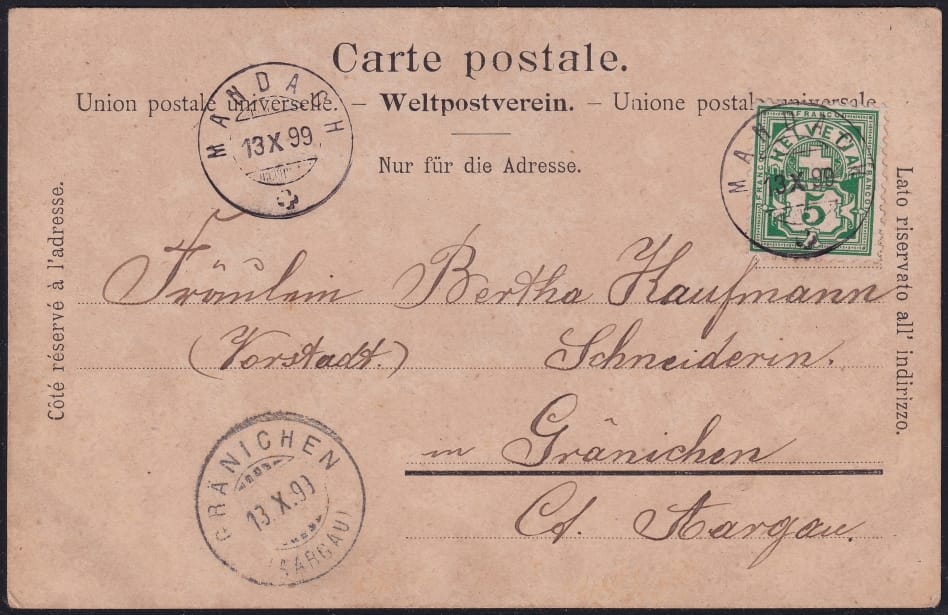 Carte postale.
Union postale universelle. – Weltpostverein. – Unione postale universale
Nur für die Adresse.
MANDACH
13 X 99
MANDACH
13 X 99
FRANCO
FRANCO
FRANCO
HELVETIA
5
Côté réservé à l'adresse.
Lato riservato all' indirizzo.
Fräulein Bertha Kaufmann
(Vorstadt.) Schneiderin.
in Gränichen
Ct. Aargau.
GRÄNICHEN
13.X.99
(AARGAU)